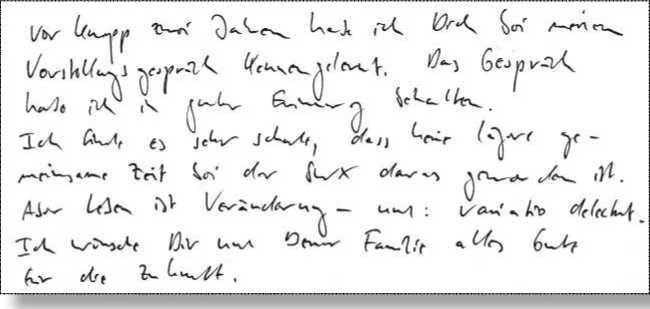 Vor knapp zwei Jahren habe ich Dich bei meinem
Vorstellungsgespräch kennengelernt. Das Gespräch
habe ich in guter Erinnerung behalten.
Ich finde es sehr schade, dass keine längere ge-
meinsame Zeit bei der daraus geworden ist.
Aber Leben ist Veränderung – und: variatio delectat.
Ich wünsche Dir und Deiner Familie alles Gute
für die Zukunft.